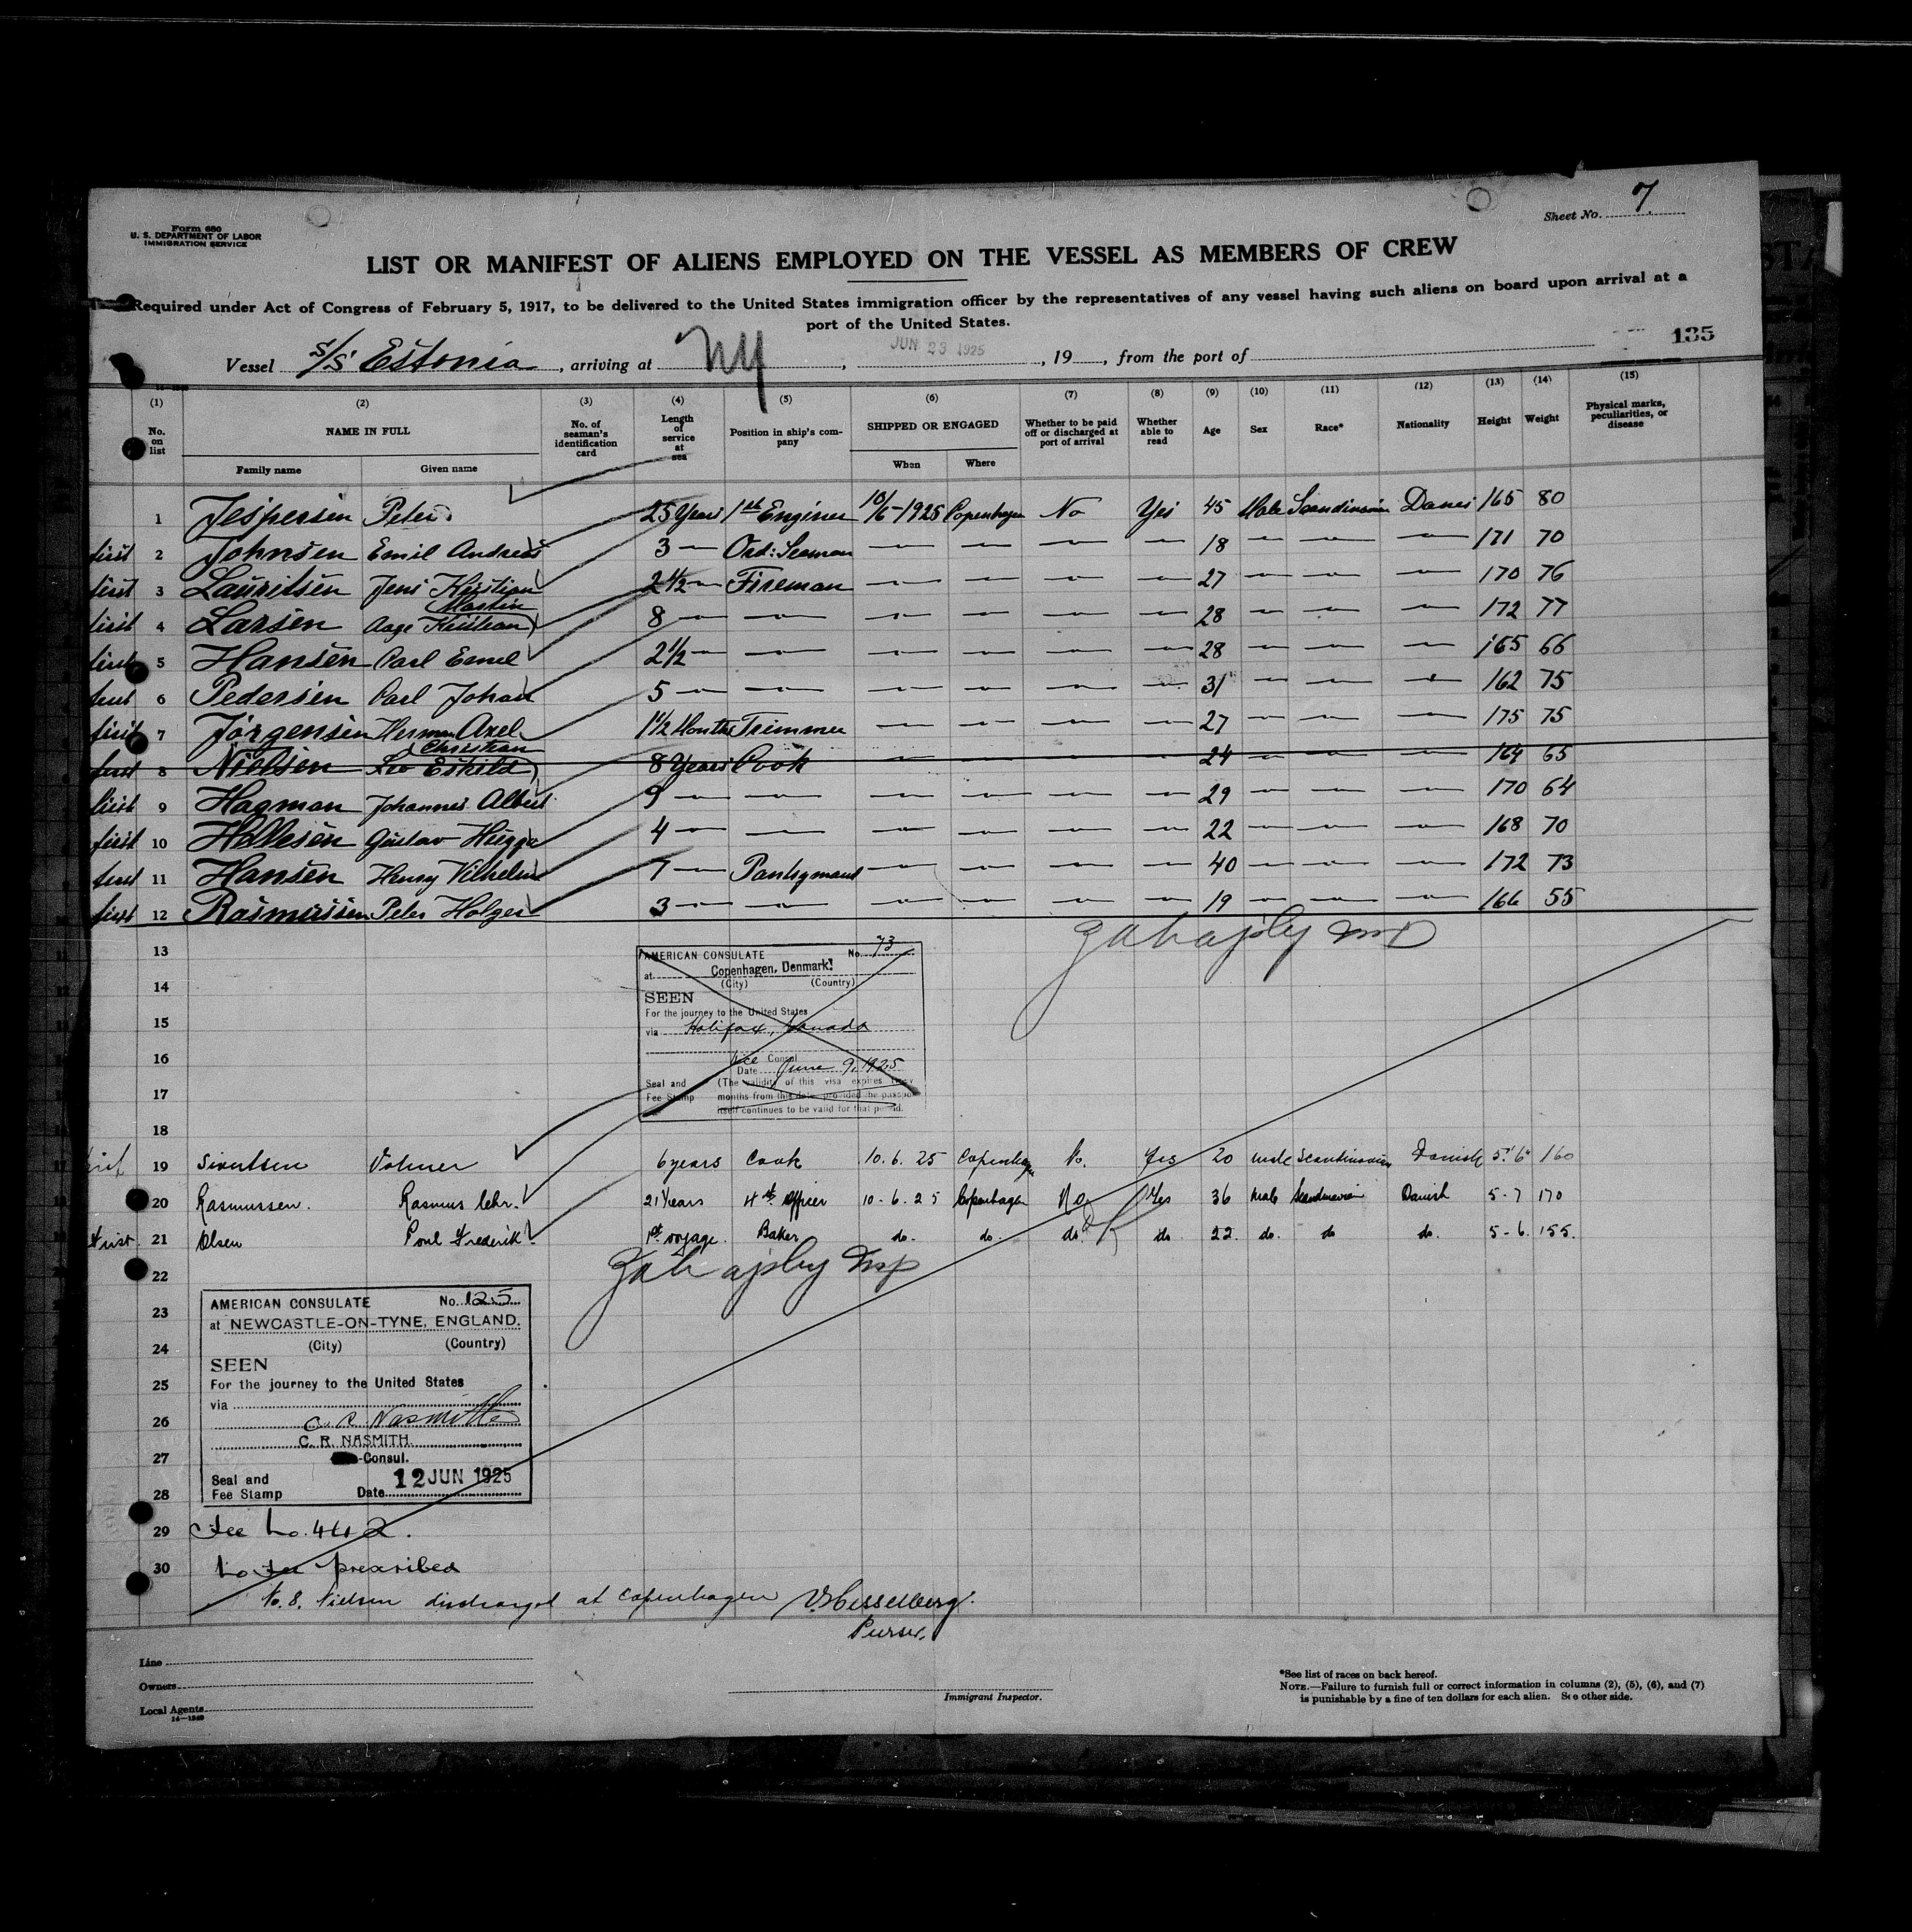 Form 680
U. S. DEPARTMENT OF LABOR
IMMIGRATION SERVICE
Sheet No. 7
LIST OR MANIFEST OF ALIENS EMPLOYED ON THE VESSEL AS MEMBERS OF CREW
Required under Act of Congress of February 5, 1917, to be delivered to the United States immigration officer by the representatives of any vessel having such aliens on board upon arrival at a
port of the United States.
135
Vessel S/S Estonia, arriving at NY, JUN 23 1925, 19, from the port of
(1) (2) (3) (4) (5) (6) (7) (8) (9) (10) (11) (12) (13) (14) (15)
No. on list NAME IN FULL No. of seaman's identification card Length of service at sea Position in ship's company SHIPPED OR ENGAGED Whether to be paid off or discharged at port of arrival Whether able to read Age Sex Race* Nationality Height Weight Physical marks, peculiarities, or disease
Family name Given name When Where
1 Jespersen Peter 25 Years 1st Enginer 10/6-1925 Copenhagen No Yes 45 Male Scandinavien Danes 165 80
first 2 Johnsen Emil Andreas 3 — Ord: Seaman — — — — 18 — — — 171 70
first 3 Lauritsen Jens Kristian 2 1/2 — Fireman — — — — 27 — — — 170 76
first 4 Larsen Aage Kristian Martin 8 — — — — — — 28 — — — 172 77
first 5 Hansen Carl Emil 2 1/2 — — — — — — 28 — — — 165 66
first 6 Pedersen Carl Johan 5 — — — — — — 31 — — — 162 75
first 7 Jørgensen Herman Axel 1 1/2 Months Trimmer — — — — 27 — — — 175 75
first 8 Nielsen Leo Eskild Christian 8 Years Cook — — — — 24 — — — 164 65
first 9 Hagman Johannes Albert 9 — — — — — — 29 — — — 170 64
first 10 Hellesen Gustav 4 — — — — — — 22 — — — 168 70
first 11 Hansen Henry Vilhelm 7 — Pantrymand — — — — 40 — — — 172 73
first 12 Rasmussen Peter Holger 3 — — — — — — 19 — — — 166 55
13
14
15
16
17
18
AMERICAN CONSULATE No. 73
at Copenhagen, Denmark.
(City) (Country)
SEEN
For the journey to the United States
via Halifax, Canada
Vice Consul
Date June 9, 1925
Seal and Fee Stamp
(The validity of this visa expires
months from this date, provided the passport
itself continues to be valid for that period.
19 Sivertsen Volmer 6 years Cook 10.6.25 Copenhagen No. Yes 20 male Scandinavien Danish 5'6" 160
20 Rasmussen. Rasmus Chr. 21 Years 4th Officer 10-6-25 Copenhagen No Yes 36 Male Scandinavien Danish 5-7 170
first 21 Olsen Poul Frederik 1st voyage. Baker do. do. do. do. 22. do. do do. 5-6. 155.
22
23
24
25
26
27
28
29
30
AMERICAN CONSULATE No. 125
at NEWCASTLE-ON-TYNE, ENGLAND.
(City) (Country)
SEEN
For the journey to the United States
via
C R Nasmith
C. R. NASMITH.
-Consul.
Seal and
Fee Stamp Date 12 JUN 1925
Fee No. 442.
No fee prescribed
No. 8. Nielsen discharged at Copenhagen V. Hesselberg.
Purser.
Line
Owners
Local Agents
14—1240
Immigrant Inspector.
*See list of races on back hereof.
NOTE.—Failure to furnish full or correct information in columns (2), (5), (6), and (7)
is punishable by a fine of ten dollars for each alien. See other side.